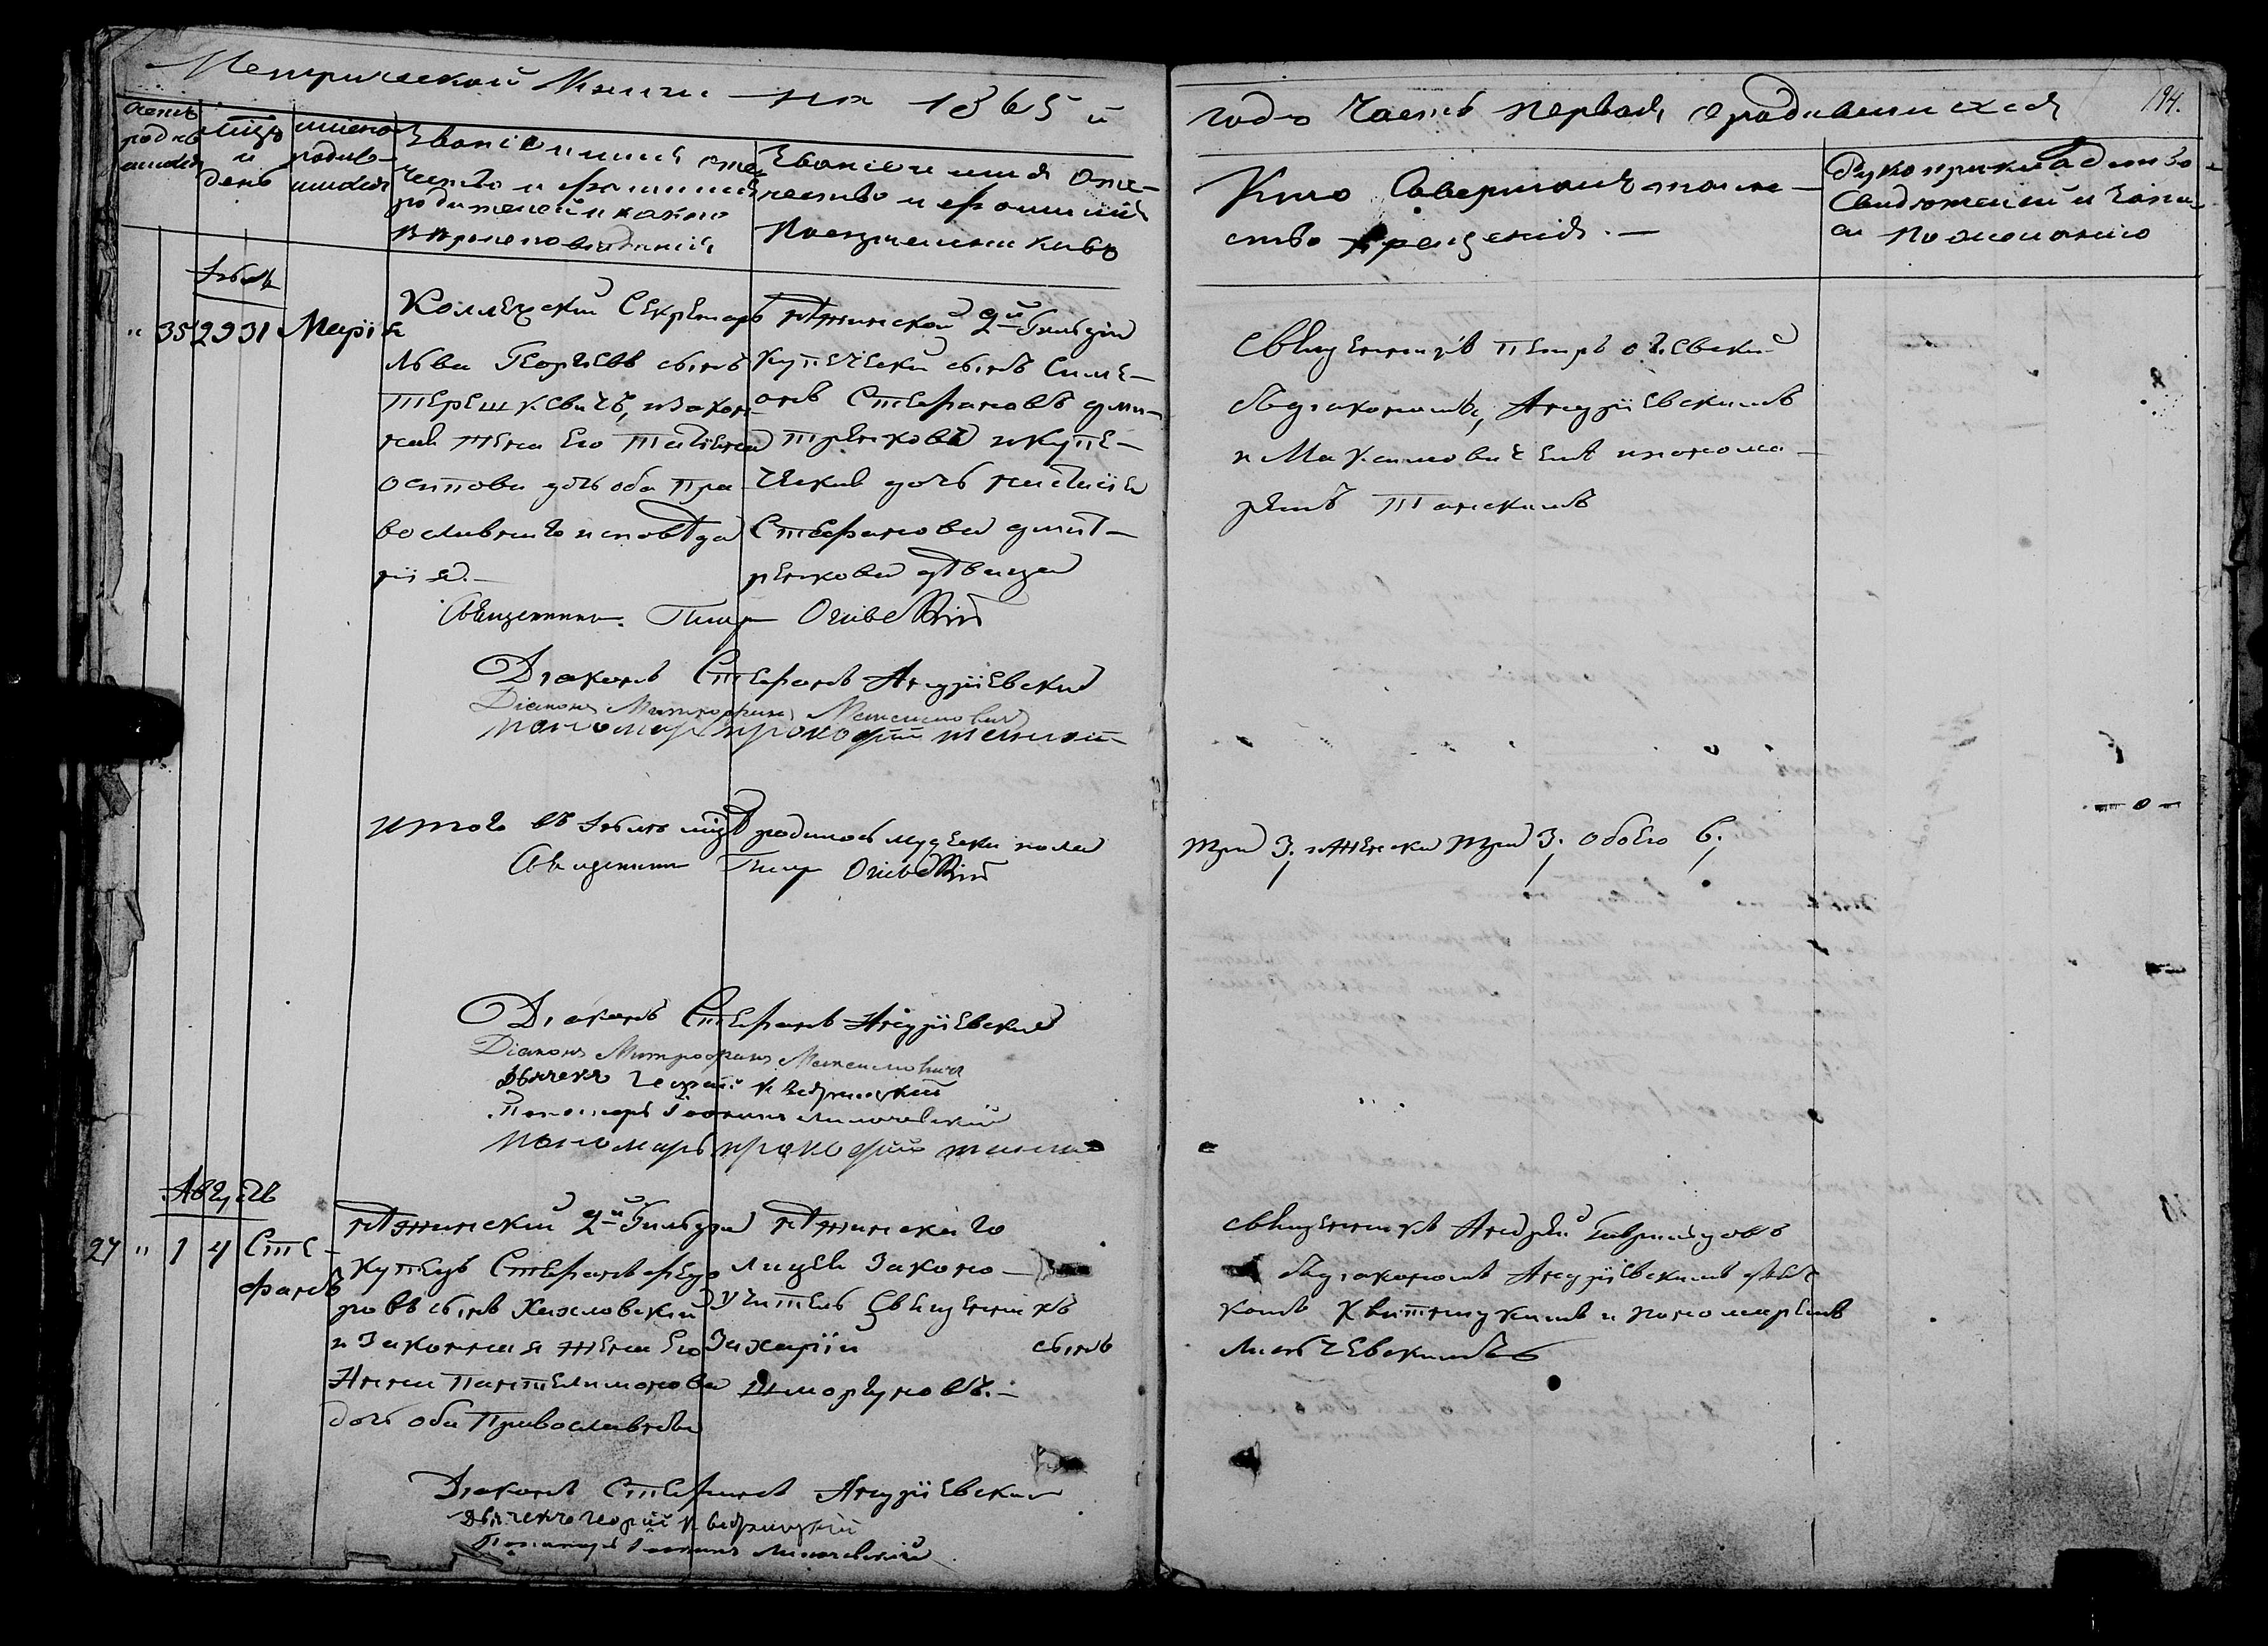 Метрической Книги на 1865 й
годъ Часть первая о родившихся
194.
Счетъ родившихся
Мѣсяцъ и день
имена родившихся
Званіе и имя, отчество и фамилія родителей и какого вѣроисповѣданія
Званіе и имя, отчество и фамилія воспріемниковъ
Кто совершалъ таинство крещенія. —
Рукоприкладство свидѣтелей о записи по желанію
Іюль
" 35 29 31 Марія
Коллежскій Секретарь
Льва Георгіевъ сынъ
Терешкевичъ, и закон-
ная жена его Татіана
Осипова дочь оба Пра-
вославнаго исповѣда
нія. —
нѣжинской 2й Гильдіи
купеческій сынъ Симе-
онъ Стефановъ Дми-
тренковъ и купе-
ческая дочь Настасія
Стефанова Дмит-
ренкова дѣвица
Священникъ Петръ Огіевскій
съ діакономъ, Андріевскимъ
и Максимовичемъ и понома-
ремъ Танскимъ
Священникъ Петръ Огіевскій
Діаконъ Стефанъ Андріевскій
Діаконъ Митрофанъ Максимовичъ
Пономарь Прокофій Танскій
Итого въ Іюлѣ мцѣ родилось мужеска пола
три 3. и женска три 3. обоего 6.
Священникъ Петръ Огіевскій
Діаконъ Стефанъ Андріевскій
Діаконъ Митрофанъ Максимовичъ
Дьячекъ Георгій Квятницкій
Пономарь Іоаннъ
Пономарь Прокофій Танскій
Августъ
27 " 1 4 Сте-
фанъ
нѣжинскій 2й Гильдіи
купецъ Стефанъ Федо
ровъ сынъ
и Законная жена его
Анна Пантелимонова
дочь оба Православны
нѣжинскаго
лицея Законо-
учитель Священникъ
Захарій сынъ
Моргуновъ. —
Священникъ Андрей
съ діакономъ Андріевскимъ дьяч
комъ Квятницкимъ и пономаремъ
Діаконъ Стефанъ Андріевскій
Дьячекъ Георгій Квятницкій
Пономарь Іоаннъ